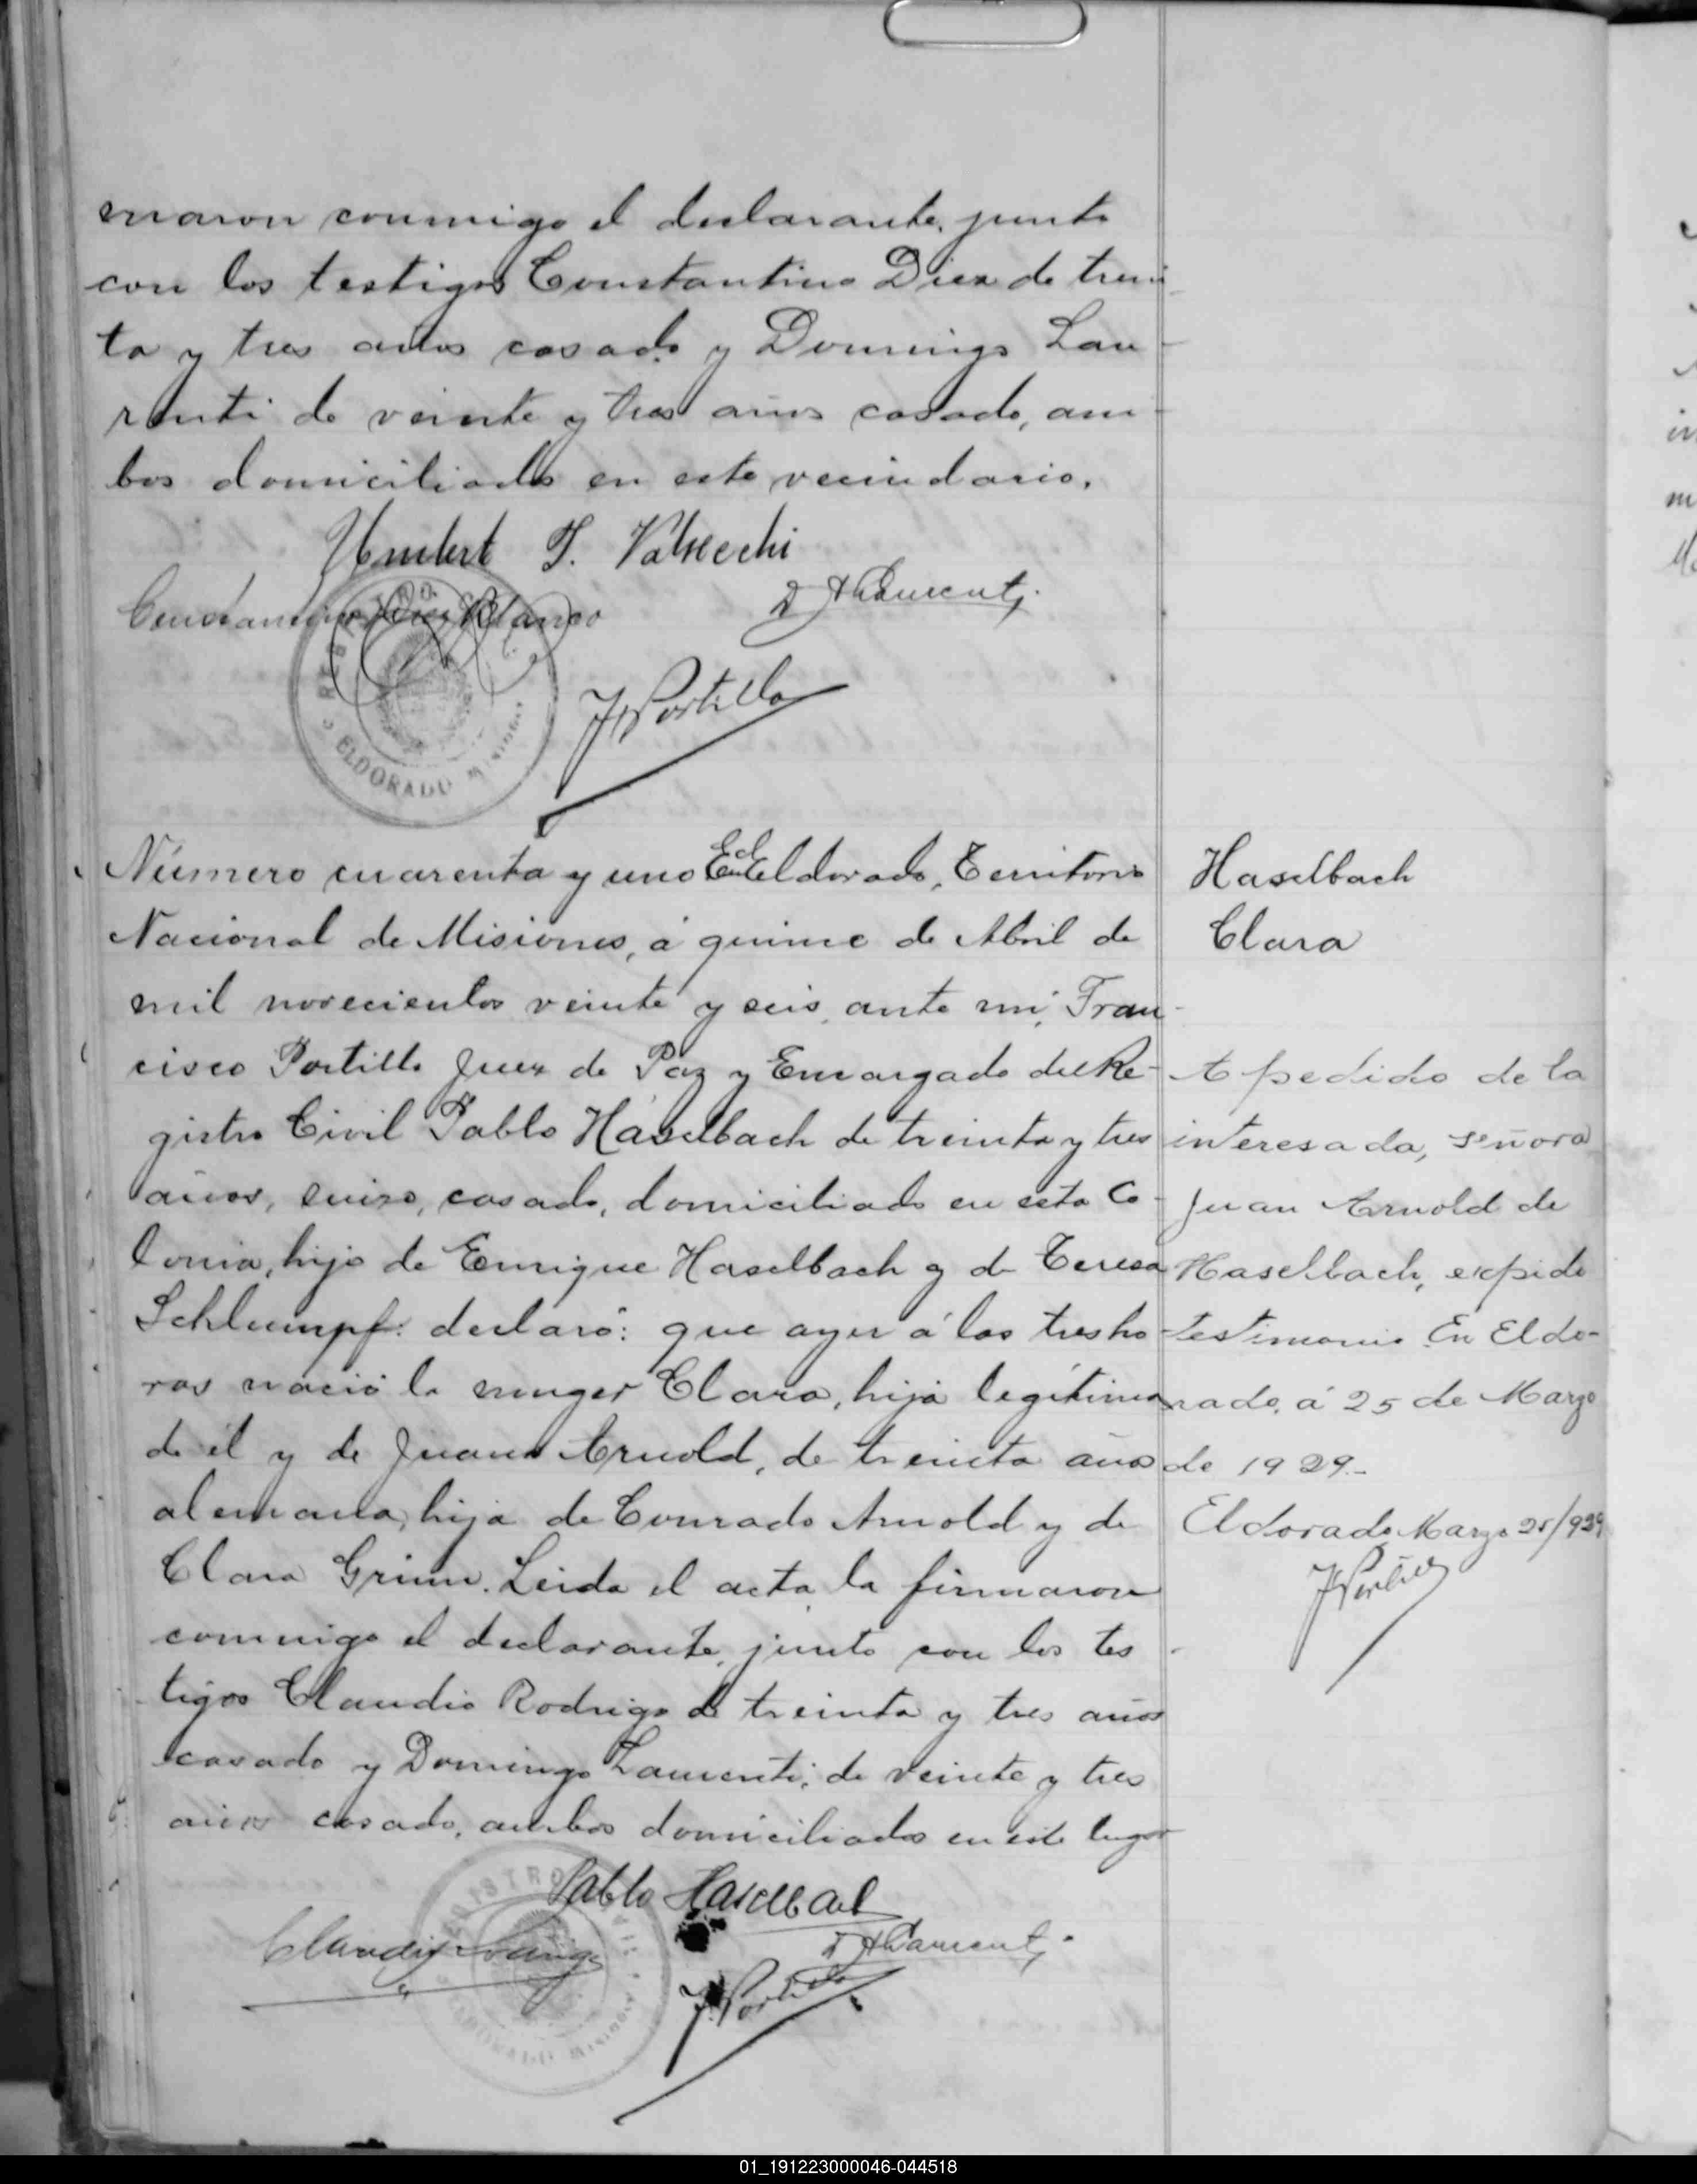 maron conmigo el declarante, junto
con los testigos Constantino Diez de trein
ta y tres años casado y Domingo Lau-
renti de veinte y tres años casado, am-
bos domiciliados en este vecindario.
Umbert J. Valsecchi
Constantino Diez Blanco
D A Laurenti
ELDORADO Misiones
F Portillo
Número cuarenta y uno En Eldorado, Territorio
Nacional de Misiones, á quince de Abril de
mil novecientos veinte y seis, ante mi, Fran-
cisco Portillo Juez de Paz y Encargado del Re-
gistro Civil Pablo Haselbach de treinta y tres
años, suizo, casado, domiciliado en esta Co-
lonia, hijo de Enrique Haselbach y de Teresa
Schlumpf: declaró: que ayer á las tres ho-
ras nació la muger Clara, hija legítima
de él y de Juana Arnold, de treinta años
alemana, hija de Conrado Arnold y de
Clara Grimm. Leida el acta la firmaron
conmigo el declarante, junto con los tes-
tigos Claudio Rodrigo de treinta y tres años
casado y Domingo Laurenti, de veinte y tres
años casado, ambos domiciliados en este lugar
Pablo Haselbach
Claudio
D A Laurenti
F Portillo
REGISTRO CIVIL ELDORADO Misiones
Haselbach
Clara
A pedido de la
interesada, señora
Juan Arnold de
Haselbach, expido
testimonio. En Eldo-
rado, á 25 de Marzo
de 1929.-
Eldorado Marzo 25/929
F Portillo
01_191223000046-044518